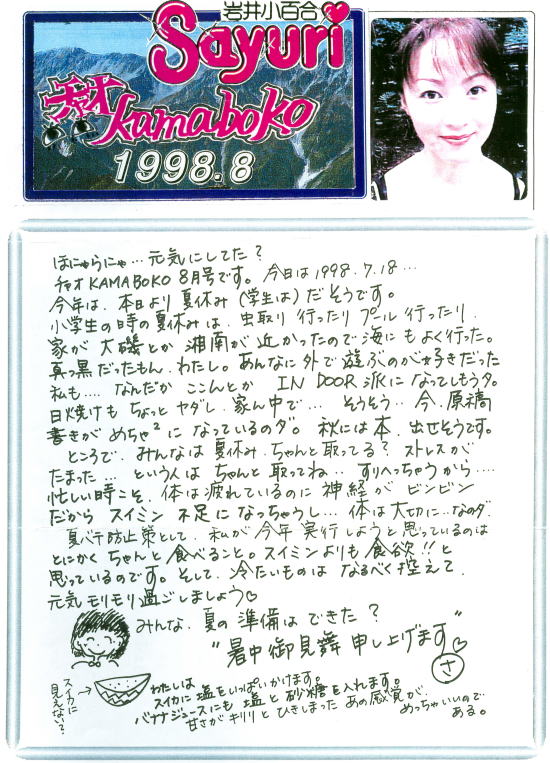 岩井小百合
Sayuri
チャオ
kamaboko
1998.8
ほにゃらにゃ…元気にしてた?
チャオ KAMABOKO 8月号です。今日は1998.7.18…
今年は、本日より夏休み(学生は)だそうです。
小学生の時の夏休みは、虫取り行ったりプール行ったり、
家が大磯とか湘南が近かったので海にもよく行った。
真っ黒だったもん、わたし。あんなに外で遊ぶのが好きだった
私も…. なんだか ここんとか IN DOOR 派になってしもうタ。
日焼けもちょっとヤダし、家ん中で… そうそう‥今、原稿
書きがめちゃ²になっているのダ。秋には本、出せそうです。
ところで、みんなは夏休み、ちゃんと取ってる? ストレスが
たまった… という人はちゃんと取ってね‥すりへっちゃうから….
忙しい時こそ、体は疲れているのに神経がビンビン
だからスイミン不足になっちゃうし…体は大切に…なのダ.
夏バテ防止策として、私が今年実行しようと思っているのは
とにかくちゃんと食べること。スイミンよりも食欲!!と
思っているのです。そして、冷たいものはなるべく控えて、
元気モリモリ過ごしましょう♡
みんな、夏の準備はできた?
"暑中御見舞申し上げます"♡
さ
スイカに
見えない?
→
わたしは
スイカに塩をいっぱいかけます。
バナナジュースにも塩と砂糖を入れます。
甘さがキリリとひきしまったあの感覚が、
めっちゃいいので
ある。